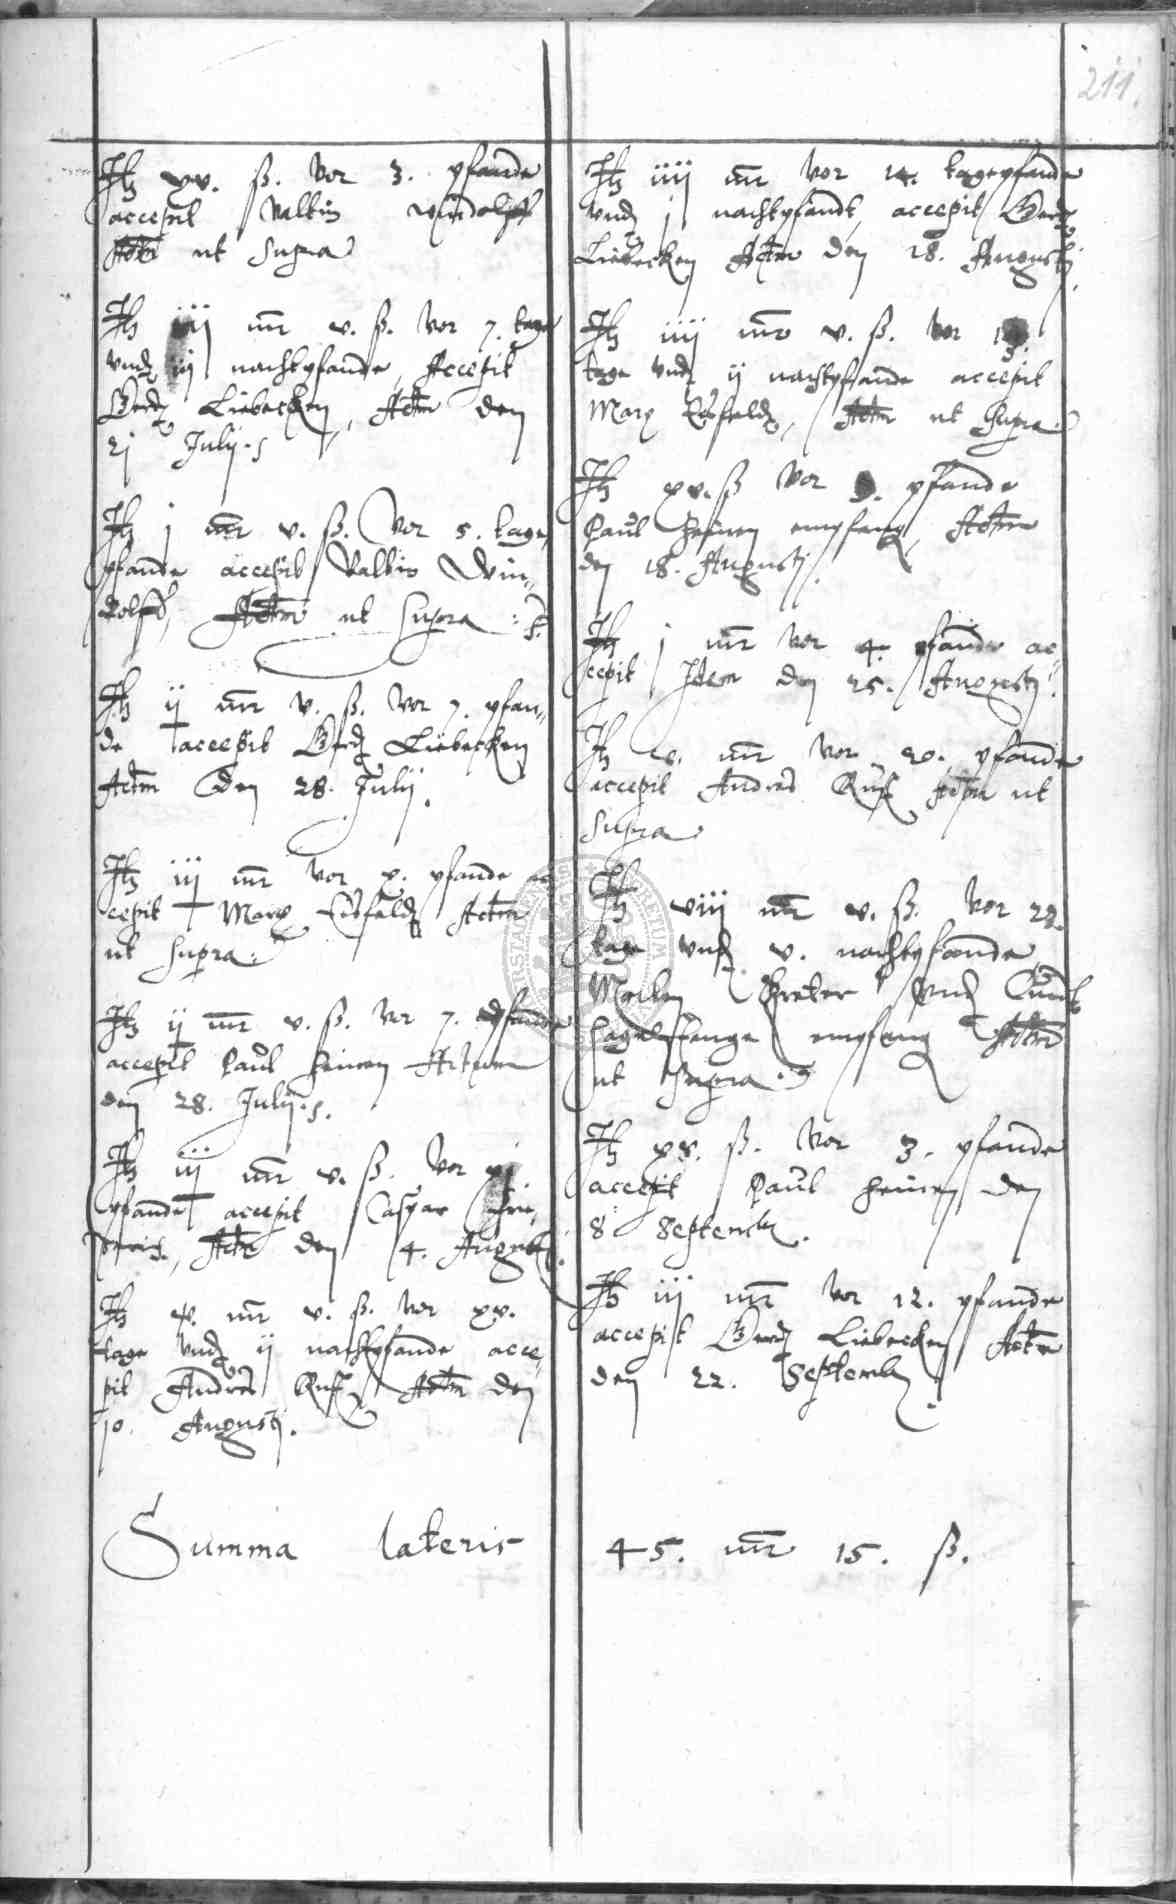 211.
Jtz xv. ß. vor 3. pfande
accepit Valtin Windolff
Actm ut Supra
Jtz iij mr v. ß. vor 7. tage
vnd iij nachtpfande, Accepit
Gerdt Liebecken, Actm den
21 Julij.
Jtz j mr v. ß. vor 5. tage
pfande accepit Valtin Win„
dolff, Actm ut Supra
Jtz ij mr v. ß. vor 7. pfan„
de accepit Gerdt Liebecken
Actm den 28. Julij.
Jtz iij mr vor x. pfande ac
cepit Marx Eisfeldt Actm
ut Supra.
Jtz ij mr v. ß. vor 7. pfande
accepit Paul Heinen Actum
den 28. Julij.
Jtz iij mr v. ß. vor xj
pfande accepit Caspar
Actm den 4. Augusti.
Jtz mr v. ß. vor xv.
tage vnd ij nachtpfande acce„
pit Andres Ruß Actm den
10. Augustj.
Jtz iiij mr vor 14. tagepfande
vnd j nachtpfandt, accepit Gerdt
Liebecken Actm den 18. Augustj.
Jtz iiij mr v. ß. vor 13.
tage vnd ij nachtpfande accepit
Marx Eisfeldt, Actm ut Supra
Jtz xv. ß vor 3. pfande
Paul Heinen empfang, Actm
den 18. Augustj.
Jtz j mr vor 4. pfande ac
cepit Idem den 25. Augustj.
Jtz mr vor 20. pfande
accepit Andres Ruß Actm ut
Supra
Jtz viij mr v. ß. vor 29.
tage vnd v. nachtpfande
vnd
empfang Actm
ut Supra.
Jtz xv. ß. vor 3. pfande
accepit Paul Heinen den
8 Septemb.
Jtz iij mr vor 12. pfande
accepit Gerdt Liebecken Actm
den 22. Septemb.
Summa lateris 45. mr 15. ß.